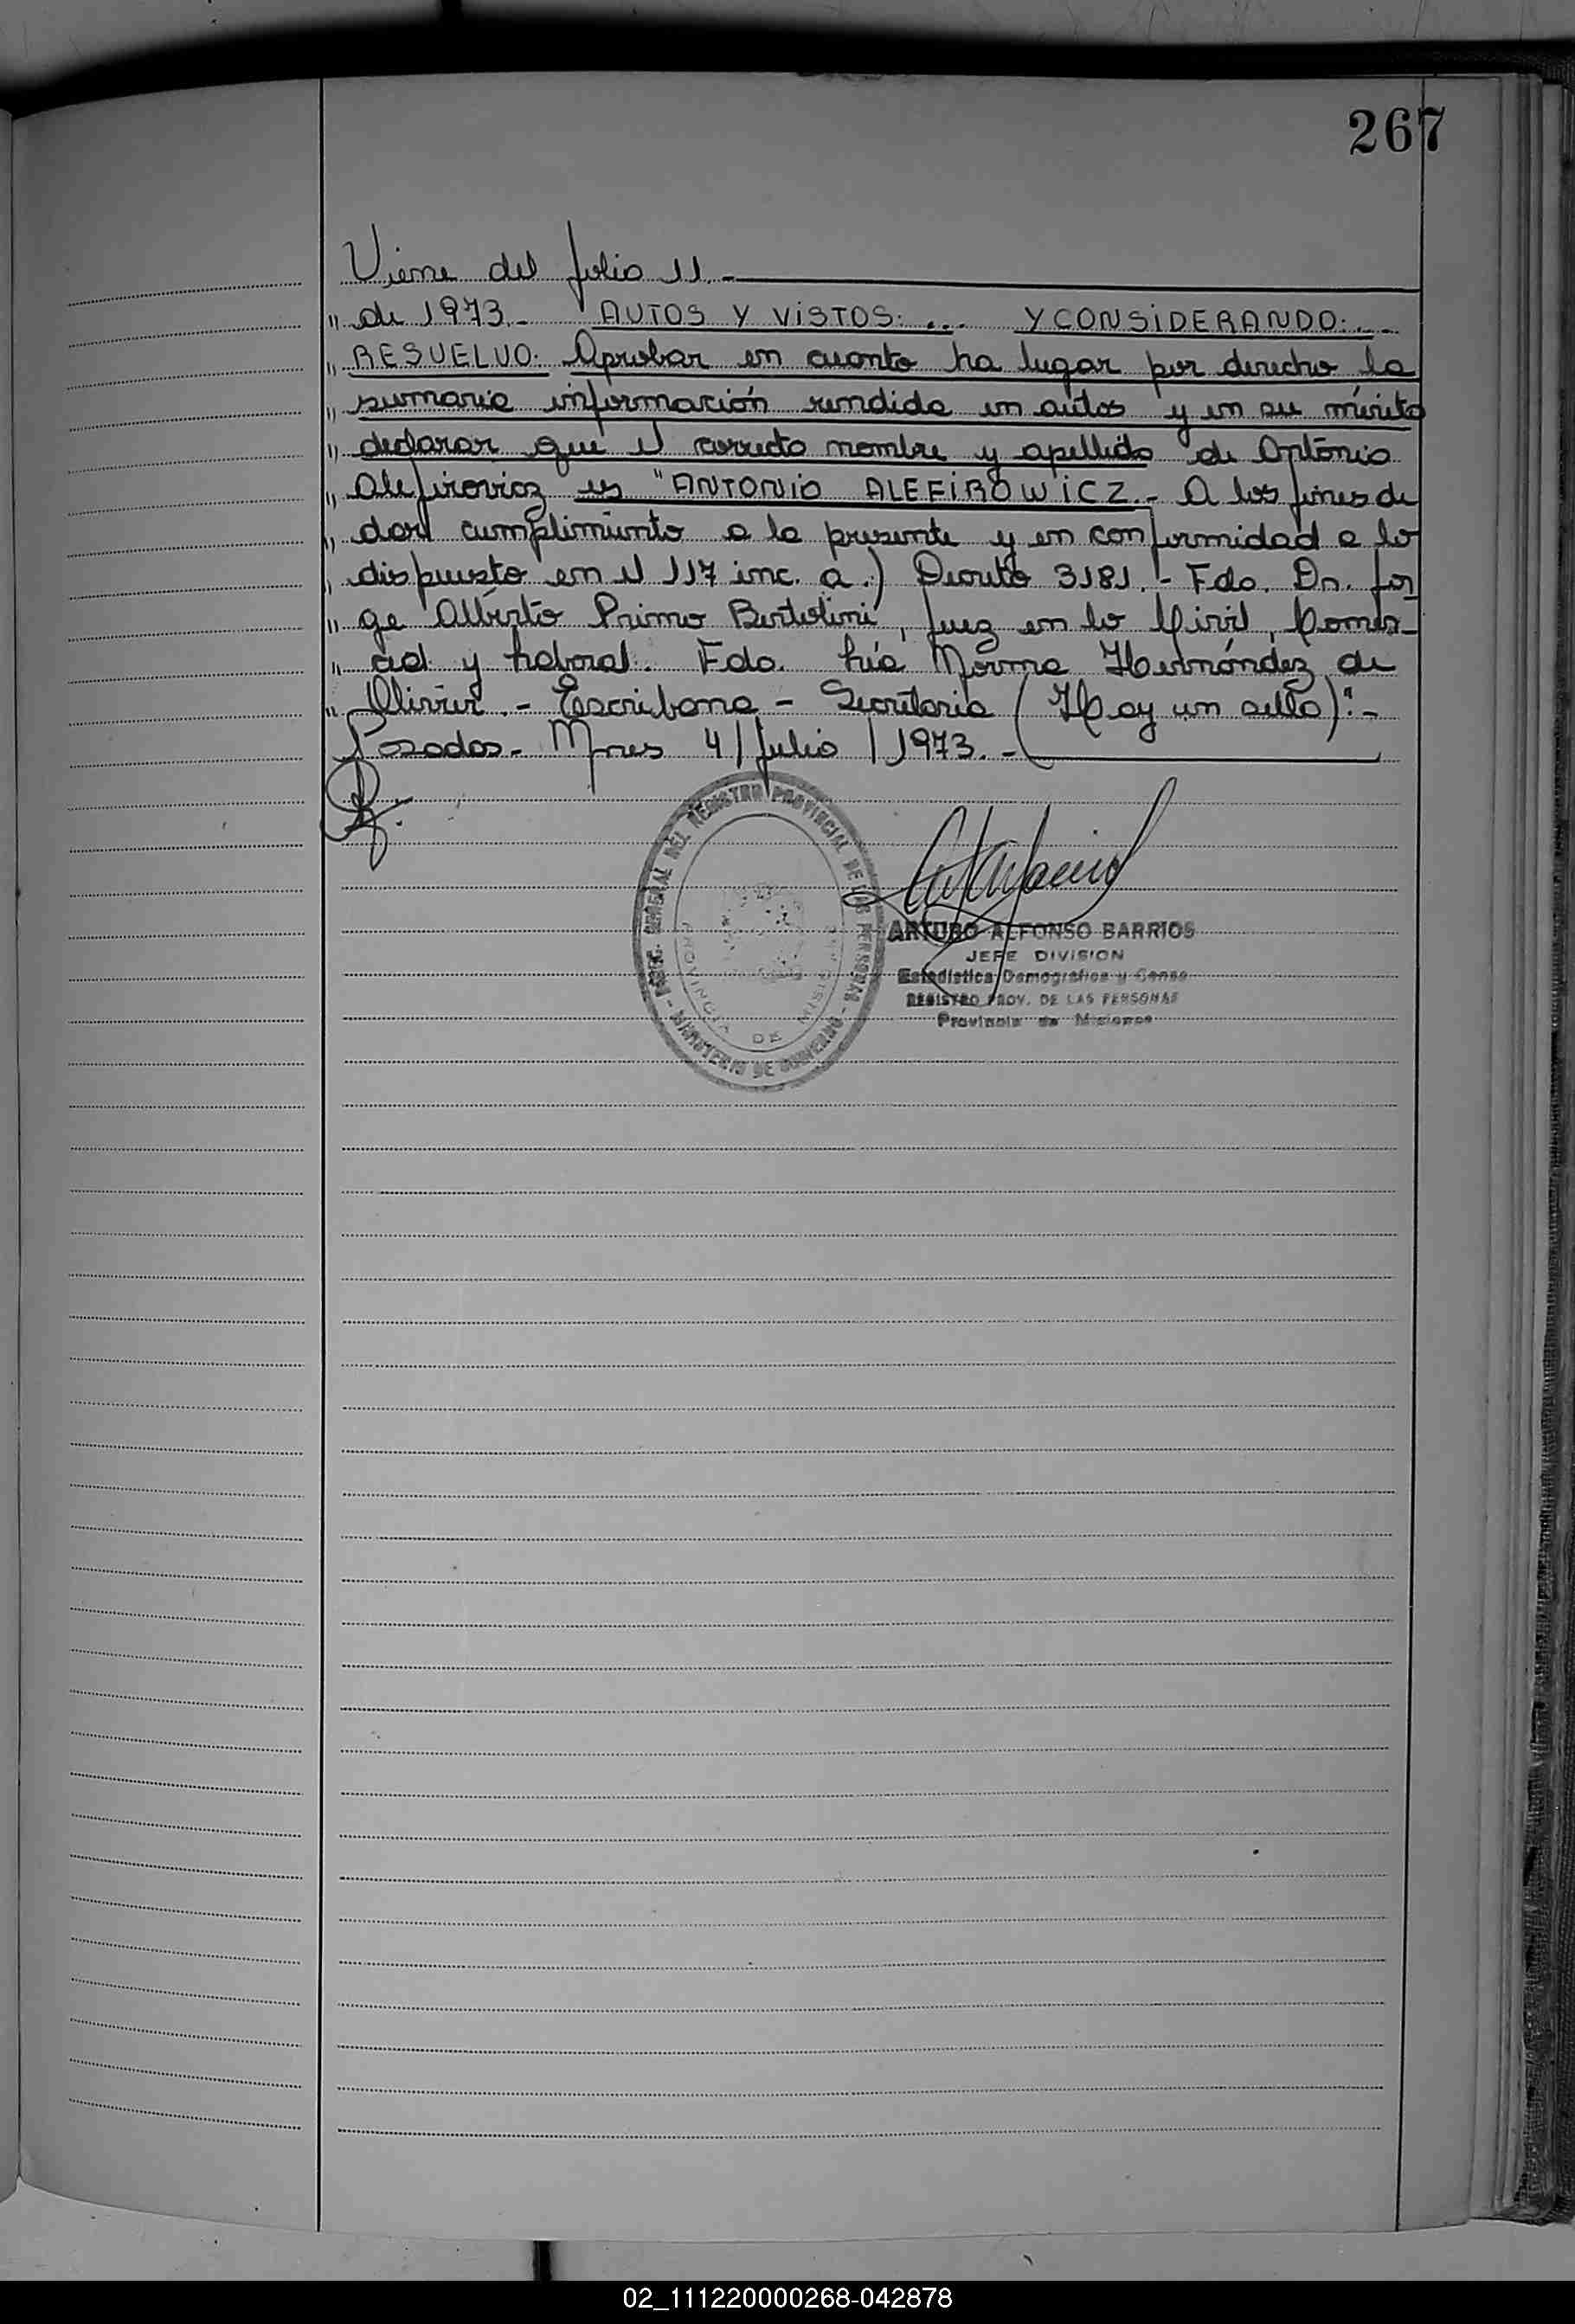 267
Viene del folio 11.-
" de 1973.- AUTOS Y VISTOS: ... Y CONSIDERANDO: ...
" RESUELVO: Aprobar en cuanto ha lugar por derecho la
" sumaria información rendida en autos y en su mérito
" declarar que el correcto nombre y apellido de Antonio
" Alefirovicz es "ANTONIO ALEFIROWICZ.- A los fines de
" dar cumplimiento a la presente y en conformidad a lo
" dispuesto en el 117 inc. a.) Decreto 3181.- Fdo. Dr. Jor-
" ge Alberto Primo Bertolini, Juez en lo Civil, Comer-
" cial y Laboral. Fdo. Lía Norma Hernández de
" Olivier.- Escribana - Secretaria (Hay un sello):-
Posadas.- Mnes 4/Julio/1973.-
DIREC. GENERAL DEL REGISTRO PROVINCIAL DE LAS PERSONAS - MINISTERIO DE GOBIERNO -
PROVINCIA DE MISIONES
ARTURO ALFONSO BARRIOS
JEFE DIVISION
Estadistica Demografica y Censo
REGISTRO PROV. DE LAS PERSONAS
Provincia de Misiones
02_111220000268-042878